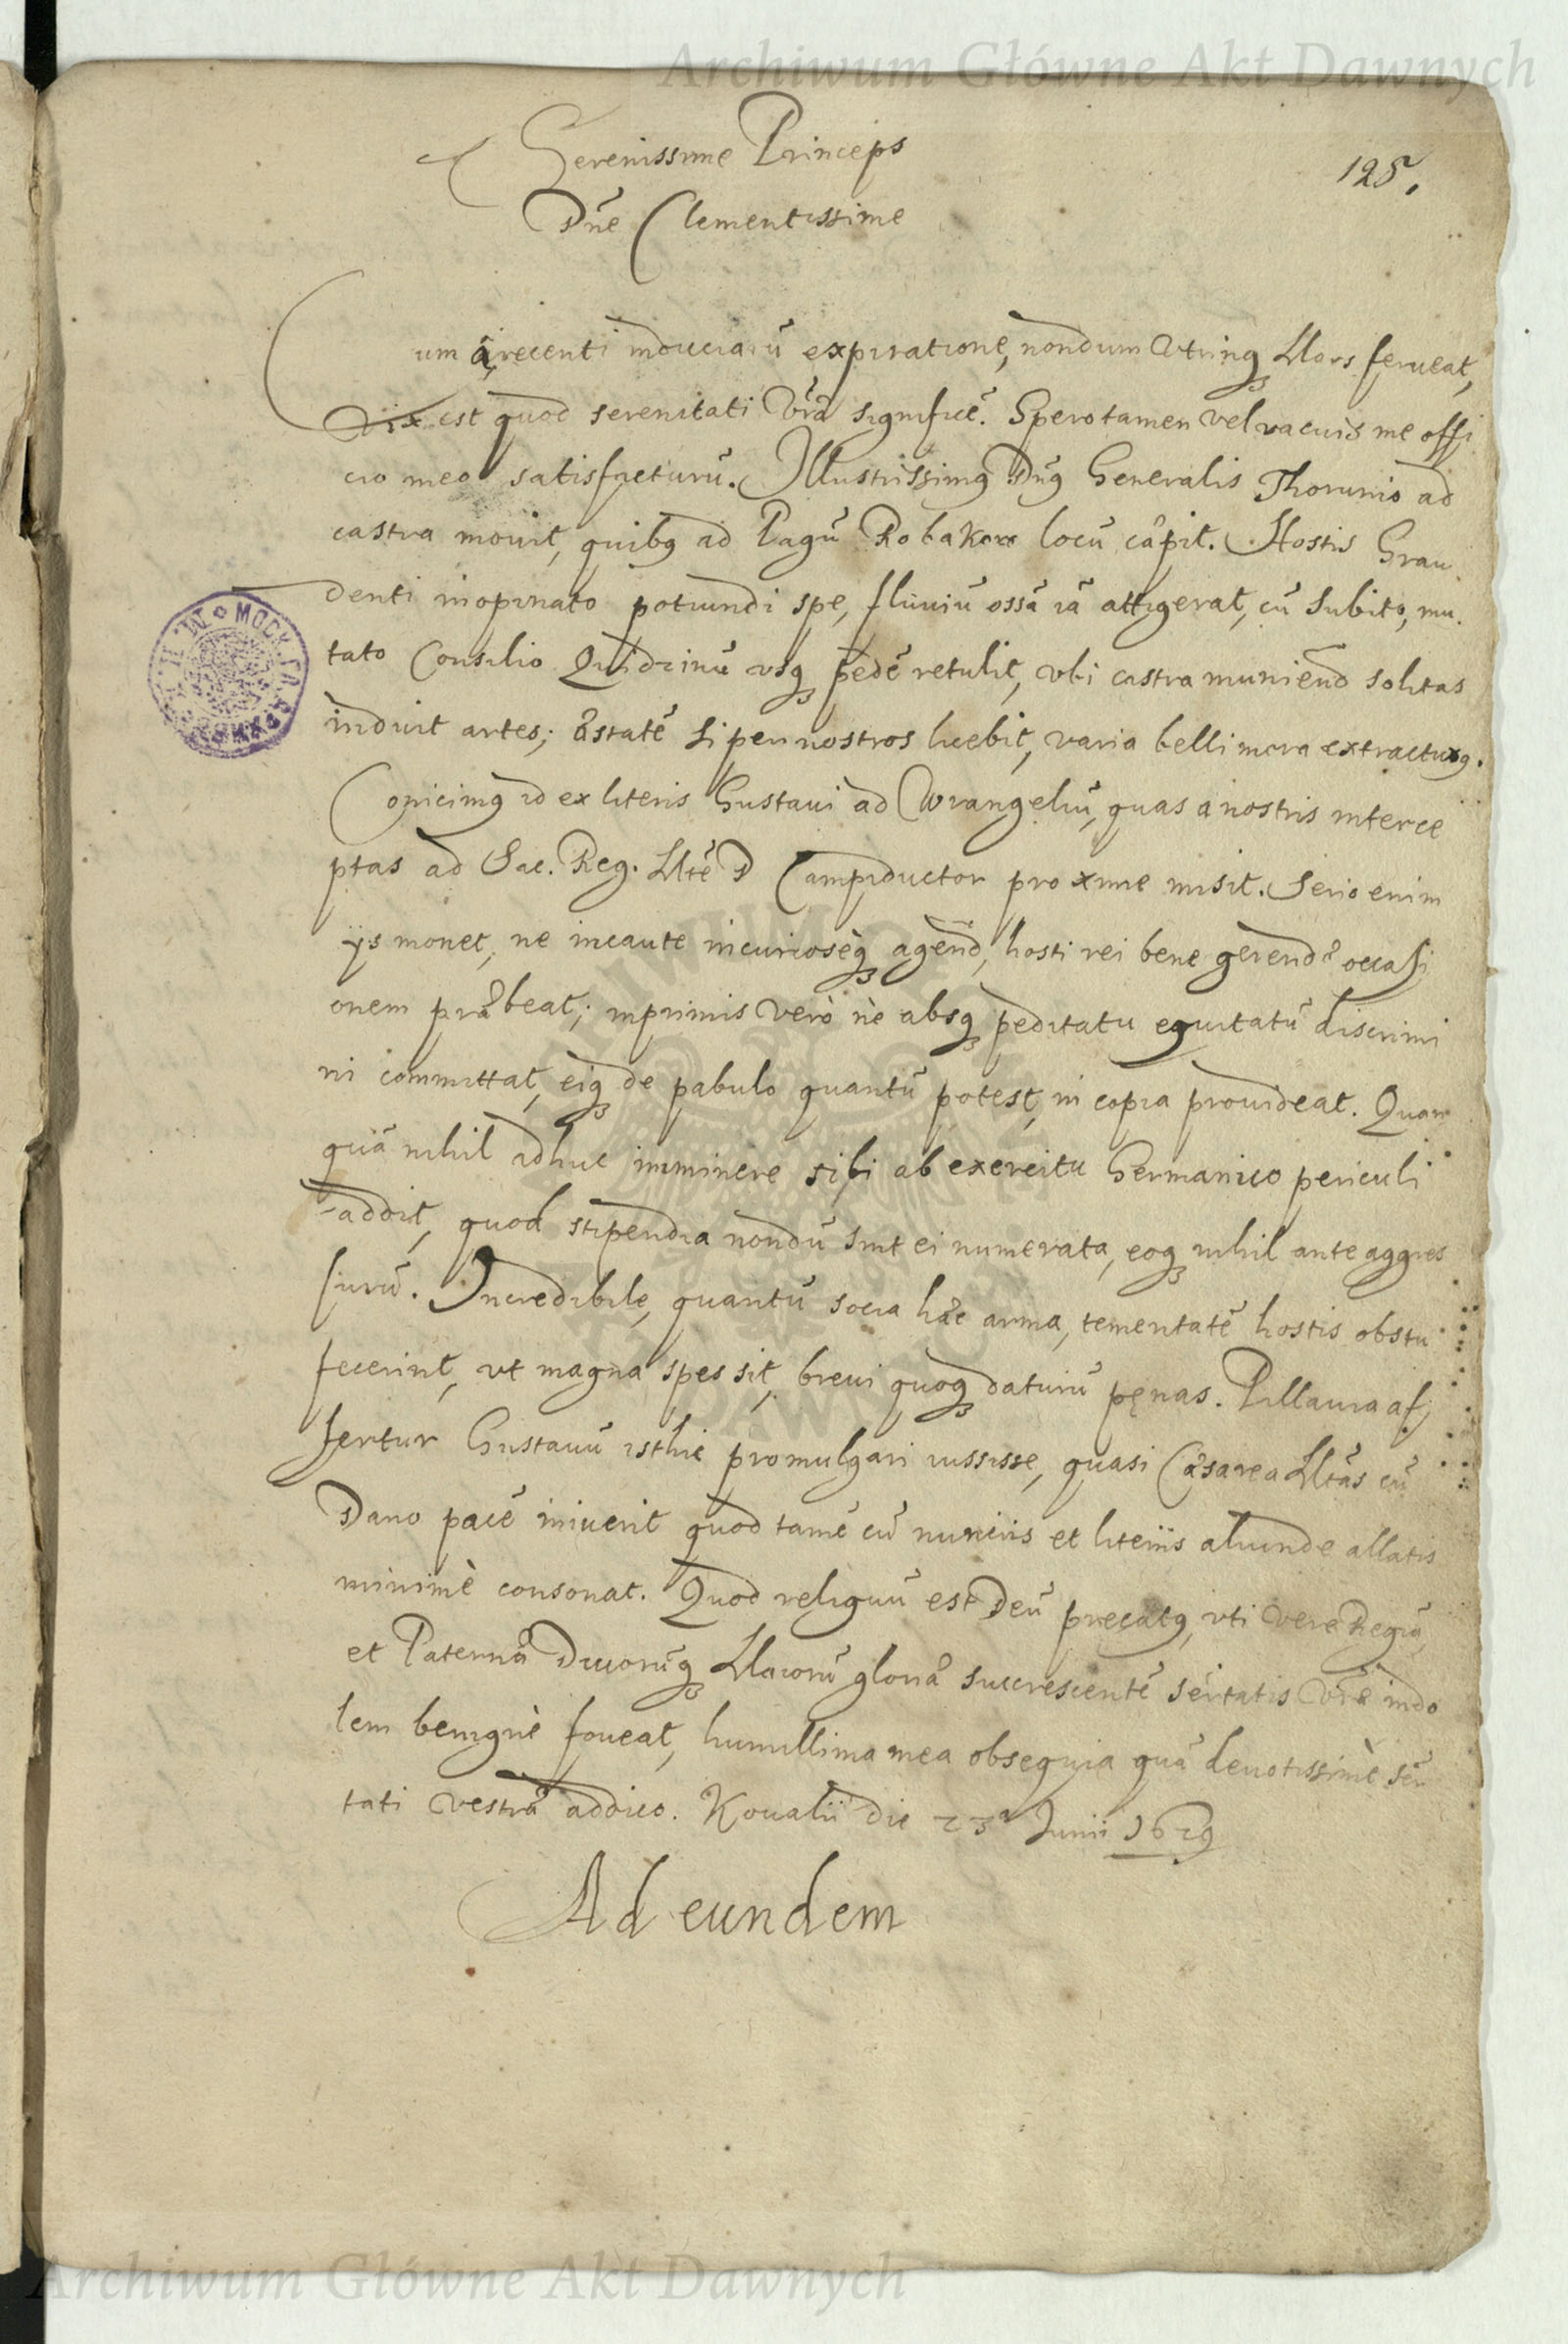 125.
Serenissime Princeps
Dñe Clementissime
Cum a recenti induciarū expiratione, nondum Vtrinq Mars ferueat,
Vix est quod serenitati Vrã significē. Spero tamen vel vacuis me offi
cio meo satisfacturū. Illustrissimq Dnq Generalis Thorunio ad
castra mouit, quibq ad Pagū Robakow locū cæpit. Hostis Grau
denti inopinato potiundi spe, fluuiū ossã iã attigerat, cū subito, mu
tato Consilio Quidzinū vsq pedē retulit, vbi castra muniend solitas
induit artes; æstatē si per nostros licebit, varia belli mora extracturq.
Conicimq id ex literis Gustaui ad Wrangeliū, quas a nostris interce
ptas ad Sac. Reg. Mtē D Campiductor proxime misit. Serio enim
ijs monet, ne incaute incurioseq agend, hosti rei bene gerendæ occasi
onem præbeat; inprimis verò nè absq peditatu equitatū discrimi
ni committat, eiq de pabulo quantū potest, in copia prouideat. Quan
quã nihil adhuc imminere sibi ab exercitu Germanico periculi
addit, quod stipendia nondū sint ei numerata, eoq nihil ante aggres
surū. Incredibile, quantū socia hæc arma, temeritatē hostis obstu
fecerint, vt magna spes sit, breui quoq daturū pęnas. Pillauia af
fertur Gustauū isthic promulgari iussisse, quasi Cæsarea Mtãs cū
Dano pacē iniuerit quod tamē cū nuncijs et literis aliunde allatis
minimè consonat. Quod reliquū est Deū precatq, vti vere Regiã,
et Paternã Diuorūq Maiorū gloriã succrescentē sertatis Vræ indo
lem benignè foueat, humillima mea obsequia quã deuotissimè sere
tati vestræ addico. Koualij die 23ª Junij 1629
Ad eundem
Archiwum Główne Akt Dawnych
Archiwum Główne Akt Dawnych